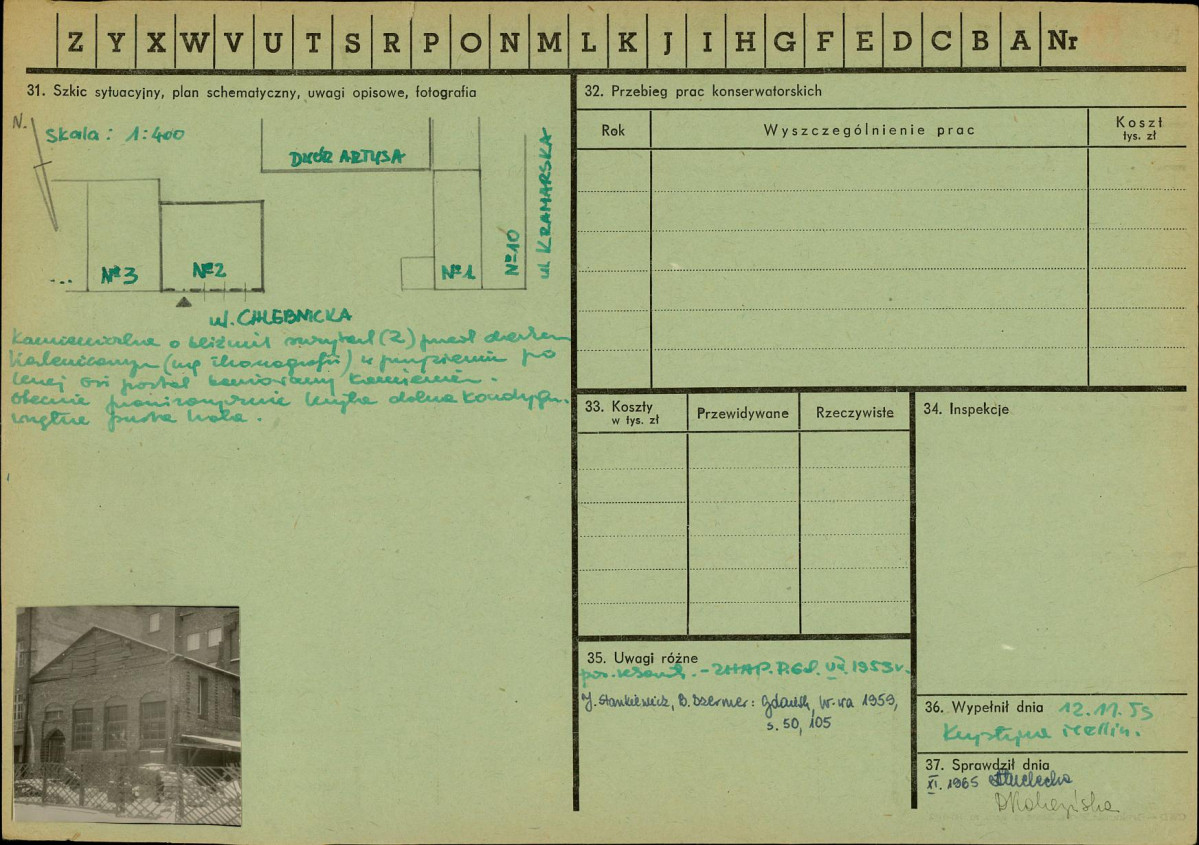 Z Y X W V U T S R P O N M L K J I H G F E D C B A Nr
31. Szkic sytuacyjny, plan schematyczny, uwagi opisowe, fotografia
N.
Skala: 1:400
DWÓR ARTUSA
ul. KRAMARSKA
...
№3
№2
№1
№10
ul. CHLEBNICKA
Kamieniczka o bliźnich (2) przed
(wg ikonografii) w
osi portal kamieniem.
Obecnie dolna kondygn.
pusta hala.
32. Przebieg prac konserwatorskich
Rok
Wyszczególnienie prac
Koszt
tys. zł
33. Koszty
w tys. zł
Przewidywane
Rzeczywiste
34. Inspekcje
35. Uwagi różne
1953r.
J. Stankiewicz, B. Szermer: Gdańsk, W-wa 1959,
s. 50, 105
36. Wypełnił dnia 12.11.59
Krystyna Mellin.
37. Sprawdził dnia
XI. 1965